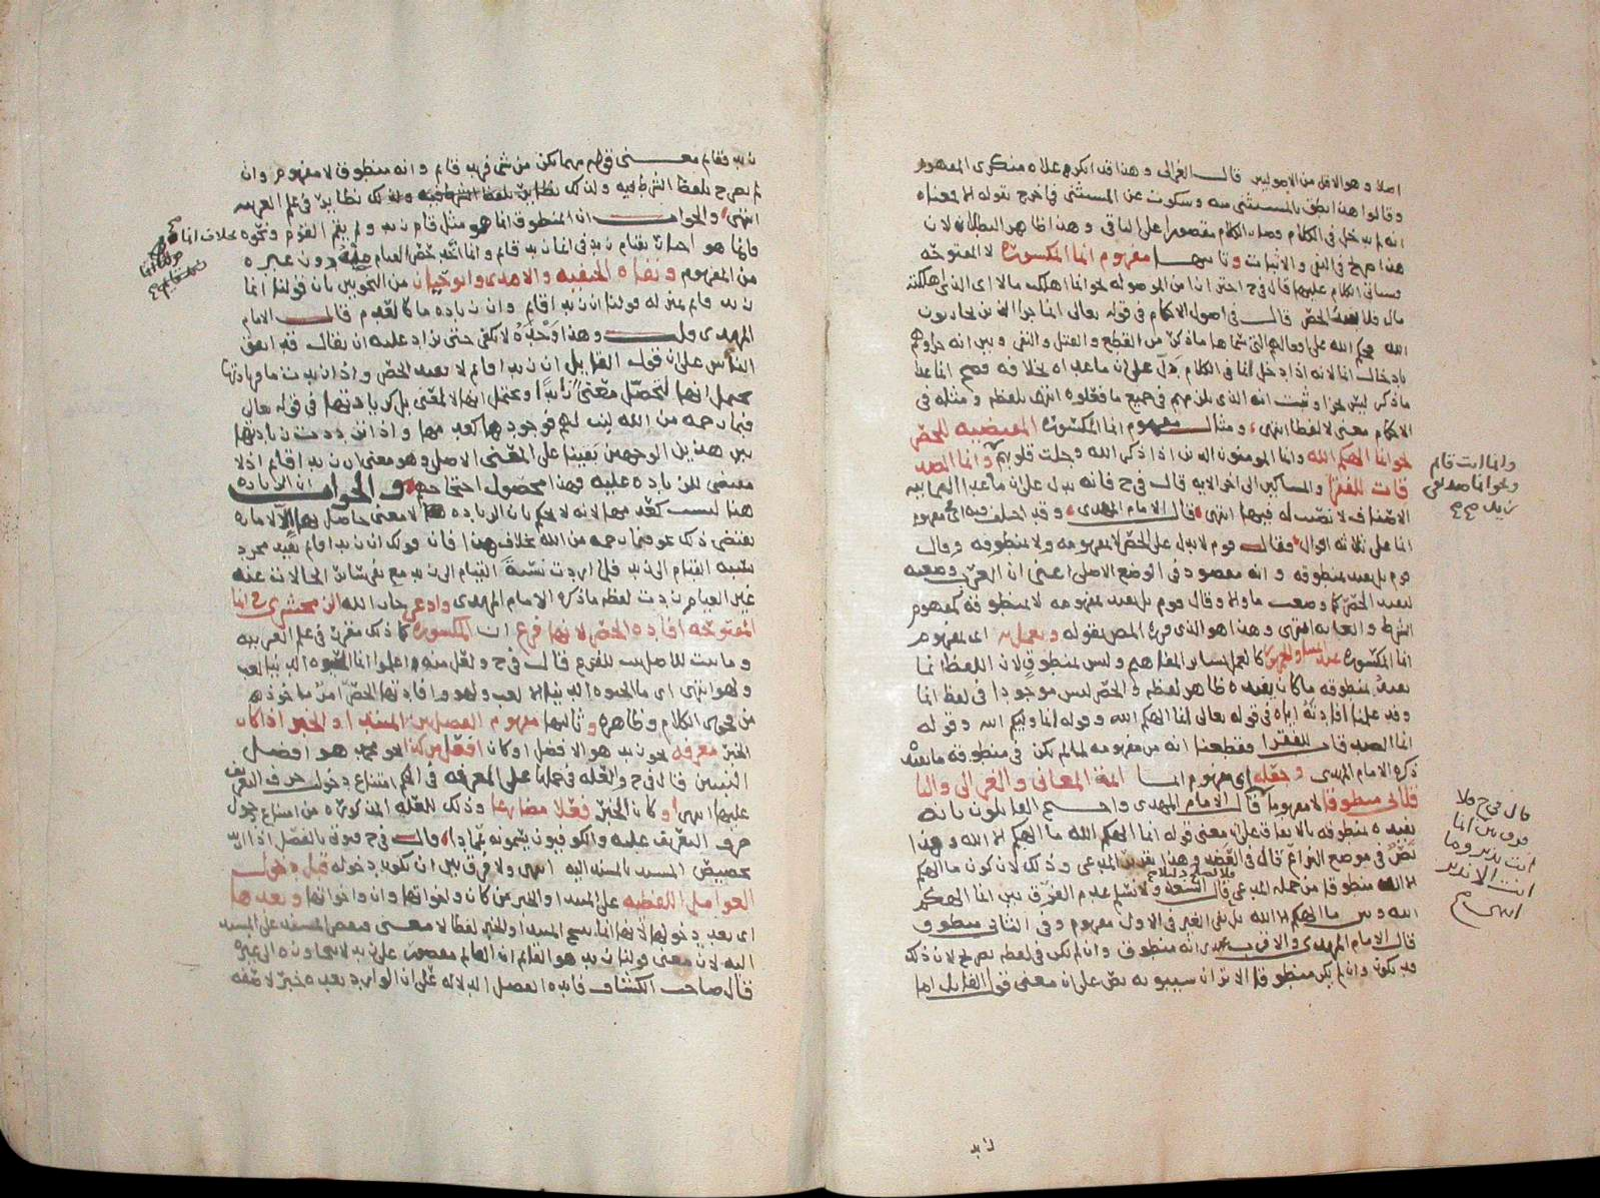 اصلا وهو الاقل من الاصوليين قال الغزالي وهذا قد انكره علاه منكري المفهوم
وقالوا هذا نطق بالمستثنى منه وسكوت عن المستثنى فما خرج بقوله الا فمعناه
انه لم يدخل في الكلام وصار الكلام مقصورا على الباقي وهذا ظاهر البطلان لان
هذا صريح في النفي والاثبات وثانيها مفهوم انما المكسورة لا المفتوحة
وسياتي الكلام عليها قال في ح احتراز من الموصولة نحو انما اهلكت مالا اي الذي اهلكته
مال فلا يفيد الحصر قال في اصول الاحكام في قوله تعالى انما جزا الذين يحاربون
الله حكم الله على افعالهم التي سماها ما ذكر من القطع والقتل والنفي وبين انه جزاوهم
بادخال انما لانه اذا دخل انما في الكلام دل على ان ما عداه بخلافه فصح ان ما عدا
ما ذكر ليس بجزا وثبت انه الذي يلزمهم في جميع ما فعلوه انتهى بلفظه ومثله في
الاحكام معنى لا لفظا انتهى ومثال مفهوم انما المكسورة المقتضية للحصر
نحو انما الهكم الله وانما المومنون الذين اذا ذكر الله وجلت قلوبهم وانما الصد
قات للفقرا والمساكين الى اخر الاية قال في ح فانه يدل على ان ما عدا الثمانية
الاصناف لا نصيب له فيها انتهى قال الامام المهدي وقد اختلف فيه اي مفهوم
انما على ثلاثة اقوال فقال قوم لا يدل على الحصر لا بمفهومه ولا بمنطوقه وقال
قوم بل يفيد بمنطوقه وانه مقصود في الوضع الاصلي اعني ان العرب وضعته
ليفيد الحصر كما وضعت ما والا وقال قوم بل يفيد بمفهومه لا بمنطوقه كمفهوم
الشرط والغاية انتهى وهذا هو الذي قرره المص بقوله ويعمل به اي بمفهوم
انما المكسورة كما يعمل بسائر المفاهيم وليس بمنطوق لان اللفظ انما
يفيد بمنطوقه ما كان يفيده ظاهر لفظه والحصر ليس موجودا في لفظ انما
وقد علمنا افادته اياه في قوله تعالى انما الهكم الله وقوله انما وليكم الله وقوله
انما الصدقات للفقرا فقطعنا انه من مفهومه لما لم يكن في منطوقه ما يفيده
ذكره الامام المهدي وجعله اي مفهوم انما ائمة المعاني والغزالي والبا
قلاني منطوقا لا مفهوما قال الامام المهدي واحتج القايلون بانه
يفيده بمنطوقه بالاتفاق على ان معنى قوله انما الهكم الله ما الهكم الا الله وهذا
نص في موضع النزاع قال في القضه وهذا تقرير المدعي وذلك لان كون ما الهكم
الا الله منطوقا من جملة المدعي فلا يصلح دليلا ح قال السعد ولا نسلم عدم الفرق بين انما الهكم
الله وبين ما الهكم الا الله بل نفي الغير في الاول مفهوم وفي الثاني منطوق
قال الامام المهدي والاقرب عندي انه منطوق وان لم يكن في لفظه تصريح لان ذلك
قد يكون وان لم يكن منطوقا الا ترى ان سيبويه نص على ان معنى قول القايل اما
وانما انت قايم
ونحو انما صديقي
زيد صح
قال في ح فلا
فرق بين انما
انت نذير وما
انت الا نذير
انتهى
زيد
زيد فقايم معنى قولهم مهما يكن من شي فزيد قايم وانه منطوق لا مفهوم وان
لم يصرح بلفظ الشرط فيه ولذلك نظاير في علم العربية
انتهى والجواب ان المنطوق انما هو مثل قام زيد ولم يقم القوم ونحوه بخلاف انما
فانما هو اخبار بقيام زيد في انما زيد قايم وانما اخذ حصر القيام عليه دون غيره
من المفهوم ونفاه الحنفيه والامدي وابو حيان من النحويين بان قولنا انما
زيد قايم بمنزلة قولنا ان زيدا قايم وان زياده ما كالعدم قال الامام
المهدي قلت وهذا وحده لا يكفي حتى يزاد عليه ان يقال قد اتفق
الناس على ان قول القايل ان زيدا قايم لا يفيد الحصر واذا زيدت ما فزيادتها
يحتمل انها لتحصل معنى زايدا ويحتمل انها لا لمعنى بل كزيادتها في قوله تعالى
فبما رحمة من الله لنت لهم فوجودها كعدمها واذا ترددت زيادتها
بين هذين الوجهين بقينا على المعنى الاصلي وهو معنى ان زيدا قايم اذ لا
مقتضي للزياده عليه فهذا محصول احتجاجهم والجواب ان الزياده
هنا ليست كعدمها لانه لا يحكم بان الزياده لا معنى حاصل بها الا لاماره
يقتضي ذلك نحو فبما رحمة من الله بخلاف هذا فان قولك ان زيدا قايم يفيد مجرد
نسبة القيام الى زيد فلو اردت نسبة القيام الى زيد مع نفي سائر الحالات عنه
غير القيام زدت لفظه ما ذكره الامام المهدي وادعى جار الله الزمخشري في انما
المفتوحة افاده الحصر لانها فرع ان المكسورة كما ذلك مقرر في علم العربية
وما ثبت للاصل ثبت للفرع قال في ح ونقل منه اعلموا انما الحيوه الدنيا لعب
ولهو انتهى اي ما الحيوه الدنيا الا لعب ولهو وافادتها الحصر امر ماخوذ
من فحوى الكلام وظاهره وثالثها مفهوم الفصل بين المبتدا والخبر اذا كان
الخبر معرفة نحو زيد هو الافضل او كان افعل من كذا نحو محمد هو افضل
النبيين قال في ح والعله في حملها على المعرفه في الحكم امتناع دخول حرف التعريف
عليها انتهى او كان الخبر فعلا مضارعا وذلك للعلة المذكوره من امتناع دخول
حرف التعريف عليه والكوفيون يسمونه عمادا قال في ح فوق بالفصل اذا اريد
تخصيص المسند بالمسند اليه انتهى ولا فرق بين ان يكون دخوله قبل دخول
العوامل اللفظيه على المبتدا والخبر من كان واخواتها وان واخواتها وبعدها
اي بعد دخولها لانها انما تنسخ المبتدا والخبر لفظا لا معنى فيقصر المسند على المسند
اليه لان معنى قولنا زيد هو القايم ان القيام مقصور على زيد لا يتجاوزه الى غيره
قال صاحب الكشاف فايده الفصل الدلاله على ان الوارد بعده خبر لا صفه